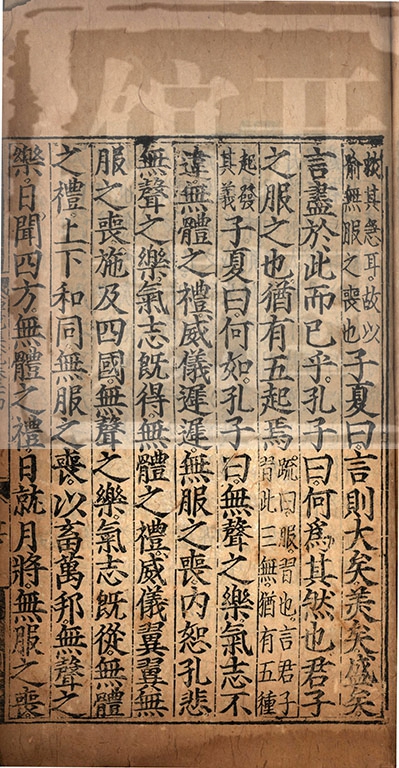 救其急耳故以喻無服之喪也子夏曰言則大矣美矣盛矣
言盡於此而已乎孔子曰何爲其然也君子
之服之也猶有五起焉疏曰服習也言君子習此三無猶有五種
起發其義子夏曰何如孔子曰無聲之樂氣志不
違無體之禮威儀遲遲無服之喪内恕孔悲
無聲之樂氣志旣得無體之禮威儀翼翼無
服之喪施及四國無聲之樂氣志旣從無體
之禮上下和同無服之喪以畜萬邦無聲之
樂日聞四方無體之禮日就月將無服之喪